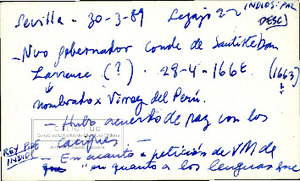 Sevilla - 30-3-89 Legajo 2-
INDIOS: PAZ
DESC)
- Nvo gobernador conde de Santisteban
Larrense (?). 28-4-166E. (1663)
nombrado a Virrey del Perú.
- Hubo acuerdo de paz con los
caciques -
REY PIDE
INDIOS
- En cuanto a petición de VM de
que "en cuanto a los lenguas que